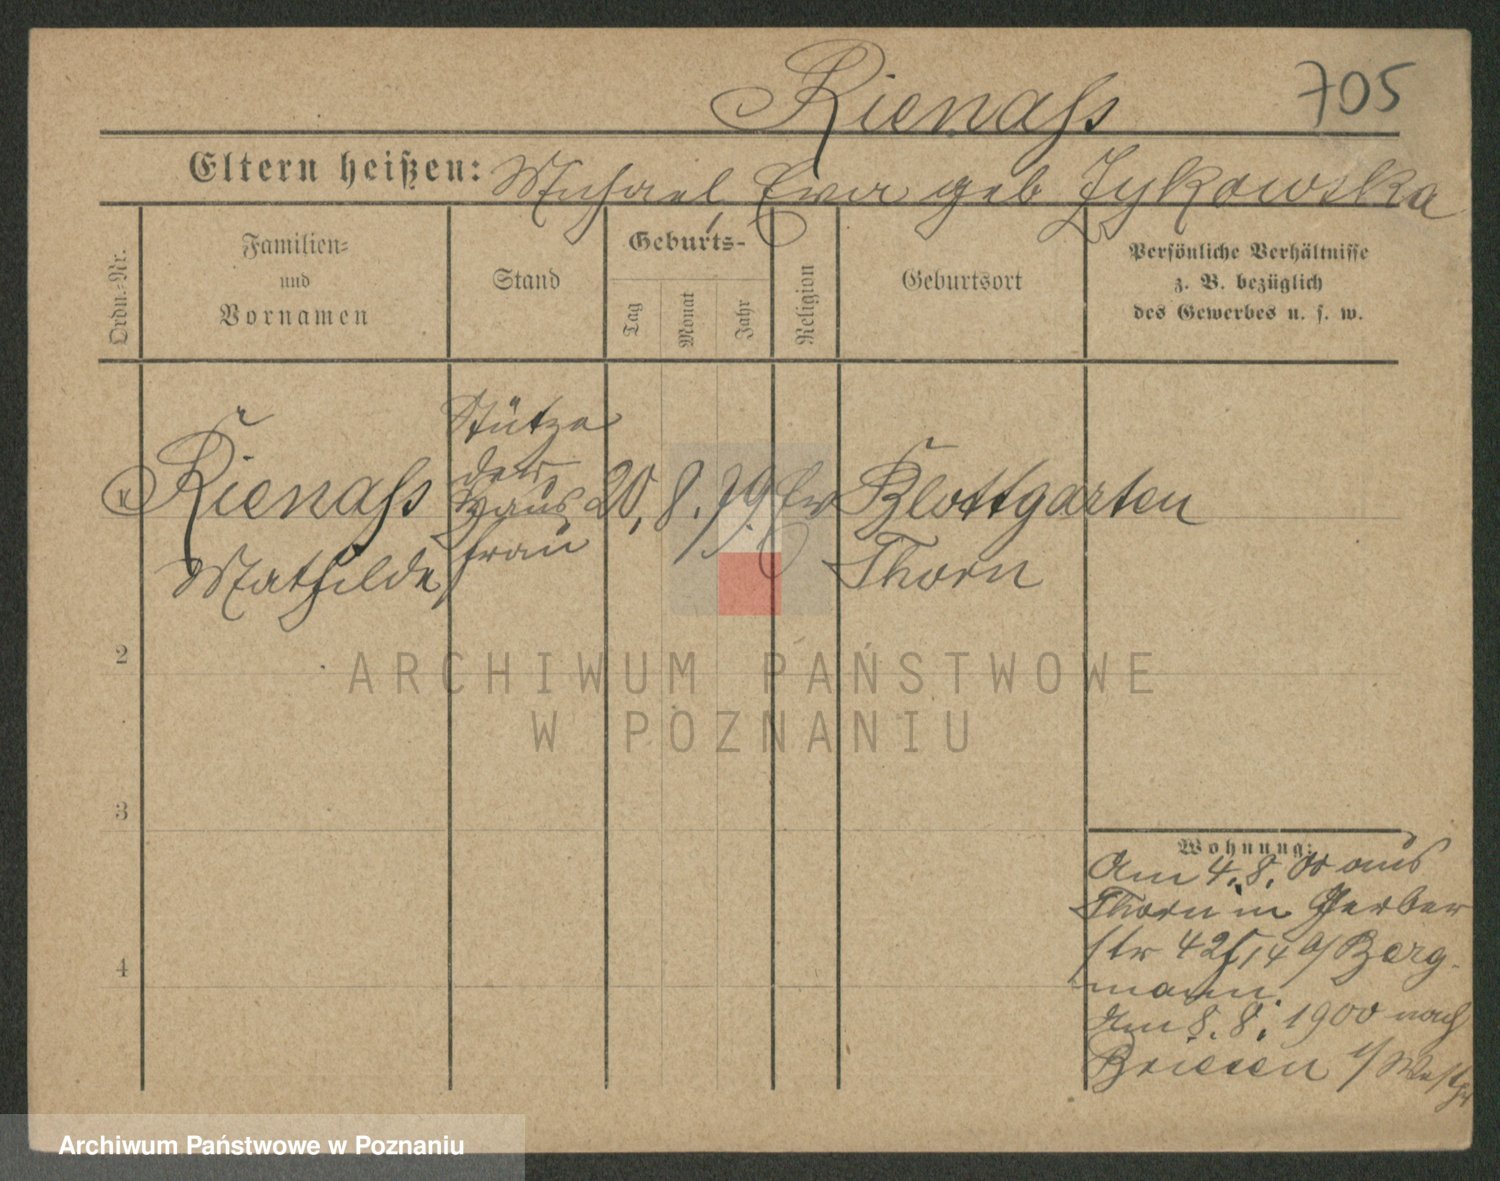 Rienaß 705
Eltern heißen: Michael, Eva geb Zykowska
Ordn.=Nr.
Familien=
und
Vornamen
Stand
Geburts-
Tag
Monat
Jahr
Religion
Geburtsort
Persönliche Verhältnisse
z. B. bezüglich
des Gewerbes u. s. w.
Stütze
der
1 Rienaß Haus 20. 8. 79. Ev Blottgarten
frau
Mathilde Thorn
2
3
4
Wohnung:
Am 4. 8. 00 aus
Thorn in Gerber
str 42 Berg-
mann.
Am 8. 8. 1900 nach
Briesen i/ Westpr
ARCHIWUM PAŃSTWOWE
W POZNANIU
Archiwum Państwowe w Poznaniu